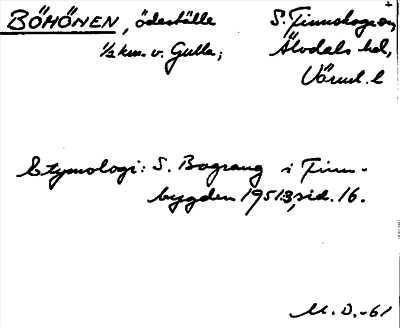 BÖHÖNEN, ödeställe S. Finnskogen,
½ km. v. Gulla; Älvdals hd,
Värml. l
Etymologi: S. Bograng i Finn-
bygden 1951:3, sid. 16.
M.O.-61